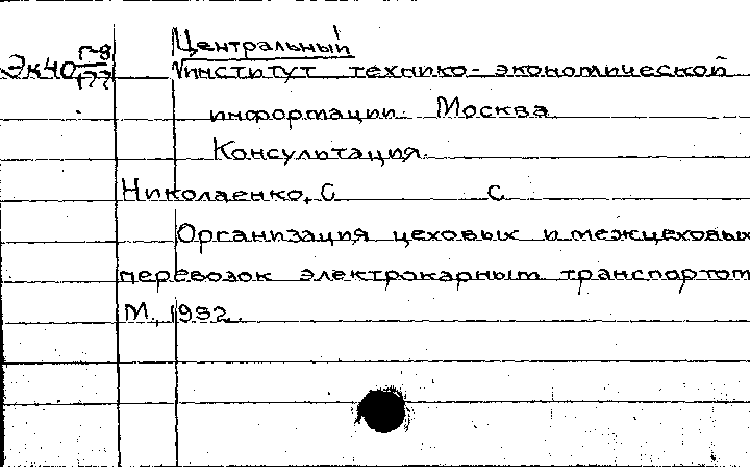 Центральный
Эк40 институт технико-экономической
информации. Москва
Консультация.
Николаенко, С С
Организация цеховых и межцеховых
перевозок электрокарным транспортом
М., 1932.